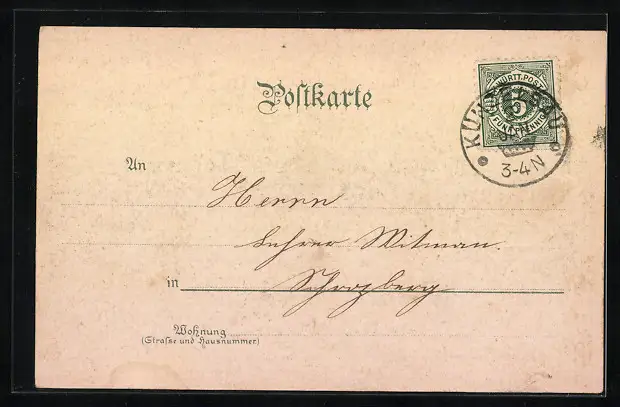 Postkarte
K. WÜRTT. POST
5
FÜNF PFENNIG
3-4 N
An
Herrn
Lehrer Witman.
in Schrozberg
Wohnung
(Straße und Hausnummer)